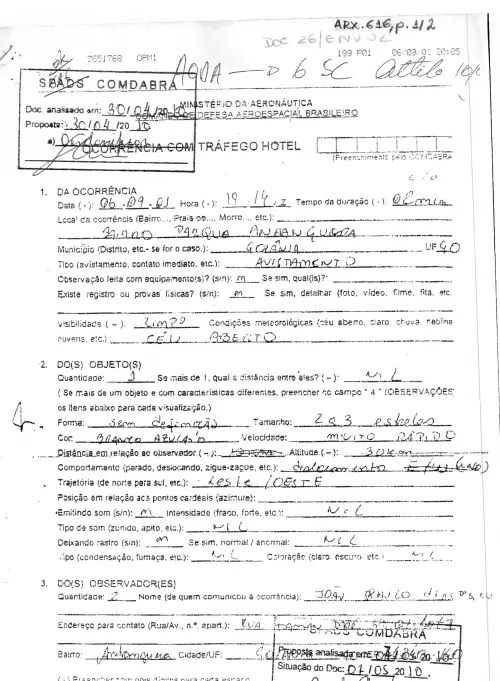 ARX.616, p. 1/2
DOC 26/ENV 02
3651768 OPM1 199 P01 06/09/01 20:05
SPADS COMDABRA
Doc analisado em: 30/04/2010
Proposta: 30/04/2010
a)
MINISTÉRIO DA AERONÁUTICA
COMANDO DE DEFESA AEROESPACIAL BRASILEIRO
OCORRÊNCIA COM TRÁFEGO HOTEL
(Preenchimento pelo COMDABRA
1. DA OCORRÊNCIA
Data ( - ): 06.09.01 Hora ( - ): 19 14 Z Tempo da duração ( - ): 02 min
Local da ocorrência (Bairro..., Praia de..., Morro..., etc.):
BAIRRO PARQUE ANHANGUERA
Município (Distrito, etc.- se for o caso.): GOIÂNIA UF GO
Tipo (avistamento, contato imediato, etc.): AVISTAMENTO
Observação feita com equipamento(s)? (s/n): n Se sim, qual(is)?
Existe registro ou provas físicas? (s/n): n Se sim, detalhar (foto, vídeo, filme, fita, etc.
Visibilidade ( - ): LIMPO Condições meteorológicas (céu aberto, claro, chuva, neblina
nuvens, etc.): CÉU ABERTO
2. DO(S) OBJETO(S)
Quantidade: 1 Se mais de 1, qual a distância entre eles? ( - ): NIL
( Se mais de um objeto e com características diferentes, preencher no campo " 4 " (OBSERVAÇÕES)
os itens abaixo para cada visualização.)
Forma: sem definição Tamanho: 2 a 3 estrelas
Cor: BRANCO AZULADO Velocidade: MUITO RÁPIDO
Distância em relação ao observador ( - ): Altitude ( - ): 30 km
Comportamento (parado, deslocando, zigue-zague, etc.): deslocamento
Trajetória (de norte para sul, etc.): Leste / OESTE
Posição em relação aos pontos cardeais (azimute):
Emitindo som (s/n): n Intensidade (fraco, forte, etc.): NIL
Tipo de som (zunido, apito, etc.): NIL
Deixando rastro (s/n): n Se sim, normal / anormal: NIL
Tipo (condensação, fumaça, etc.): NIL Coloração (claro, escuro, etc.) NIL
3. DO(S) OBSERVADOR(ES)
Quantidade: 2 Nome (de quem comunicou a ocorrência):
Endereço para contato (Rua/Av., n.º, apart.): RUA
SPADS COMDABRA
Bairro: Anhanguera Cidade/UF:
Proposta analisada em:
Situação do Doc: 01/05/2010